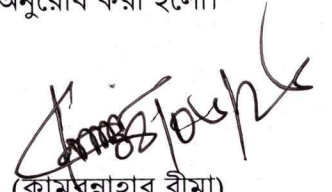 অনুরোধ করা হলো।
(কামরুন্নাহার রীমা)